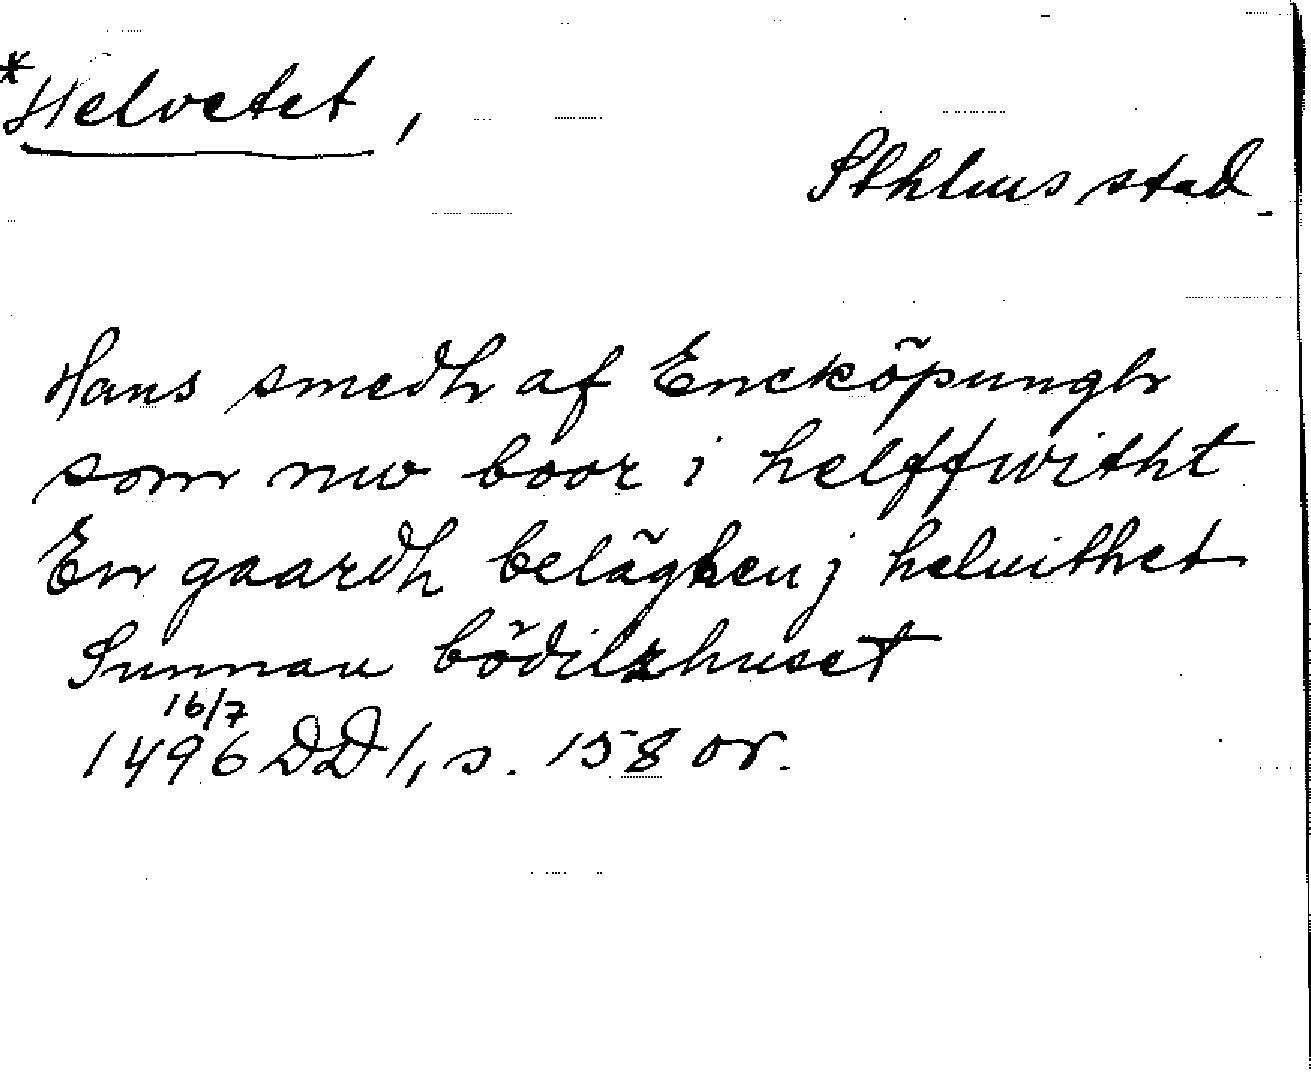 *Helvetet,
Sthlms stad.
Hans smedh af Encköpungh
som nw boor i helffwitht
En gaardh beläghen j heluithet
Sunnan bödilzhuset
16/7
1496 DD 1, s. 158 or.